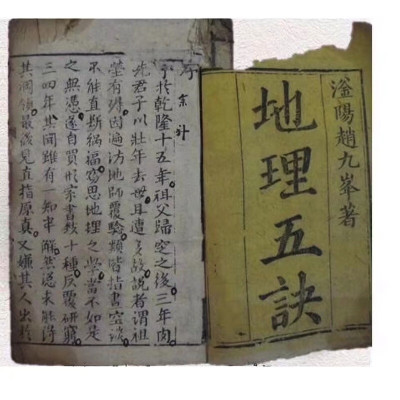 滏陽趙九峯著
地理五訣
序
予於乾隆十五年祖父歸空之後三年內
先君子以壯年去世且遭多故說者謂祖
塋有碍因遍访地師覆驗類皆指書空談
不能直断禍福窃思地理之學當不如是
之無憑遂自買形家書数十種反覆研窮
三四年其間雖有一知半解然未能得
其綱領最見直指原真又嫌其人出於